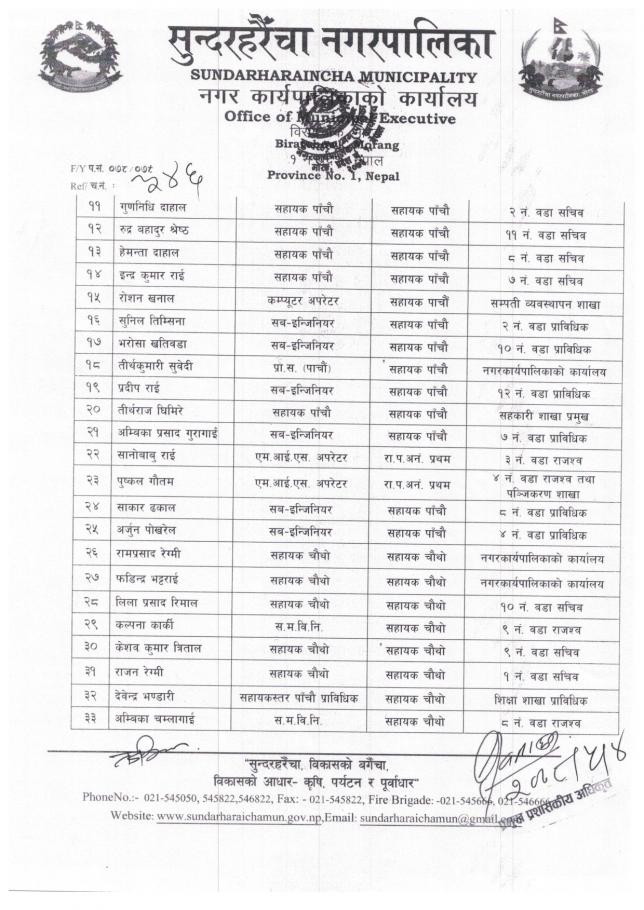 सुन्दरहरैंचा नगरपालिका
SUNDARHARAINCHA MUNICIPALITY
नगर कार्यपालिकाको कार्यालय
Office of Municipal Executive
Morang
Province No. 1, Nepal
F/Y प.सं. ०७८/०७९
Ref/ च.नं. : २४६
११ गुणनिधि दाहाल सहायक पाँचौ सहायक पाँचौ २ नं. वडा सचिव
१२ रुद्र बहादुर श्रेष्ठ सहायक पाँचौ सहायक पाँचौ ११ नं. वडा सचिव
१३ हेमन्ता दाहाल सहायक पाँचौ सहायक पाँचौ ८ नं. वडा सचिव
१४ इन्द्र कुमार राई सहायक पाँचौ सहायक पाँचौ ७ नं. वडा सचिव
१५ रोशन खनाल कम्प्यूटर अपरेटर सहायक पाचौं सम्पती व्यवस्थापन शाखा
१६ सुनिल तिम्सिना सब-इन्जिनियर सहायक पाँचौ २ नं. वडा प्राविधिक
१७ भरोसा खतिवडा सब-इन्जिनियर सहायक पाँचौ १० नं. वडा प्राविधिक
१८ तीर्थकुमारी सुवेदी प्रा.स. (पाचौं) सहायक पाँचौ नगरकार्यपालिकाको कार्यालय
१९ प्रदीप राई सब-इन्जिनियर सहायक पाँचौ १२ नं. वडा प्राविधिक
२० तीर्थराज घिमिरे सहायक पाँचौ सहायक पाँचौ सहकारी शाखा प्रमुख
२१ अम्बिका प्रसाद गुरागाई सब-इन्जिनियर सहायक पाँचौ ७ नं. वडा प्राविधिक
२२ सानोबाबु राई एम.आई.एस. अपरेटर रा.प.अनं. प्रथम ३ नं. वडा राजश्व
२३ पुष्कल गौतम एम.आई.एस. अपरेटर रा.प.अनं. प्रथम ४ नं. वडा राजश्व तथा
पञ्जिकरण शाखा
२४ साकार ढकाल सब-इन्जिनियर सहायक पाँचौ ८ नं. वडा प्राविधिक
२५ अर्जुन पोखरेल सब-इन्जिनियर सहायक पाँचौ ४ नं. वडा प्राविधिक
२६ रामप्रसाद रेग्मी सहायक चौथो सहायक चौथो नगरकार्यपालिकाको कार्यालय
२७ फडिन्द्र भट्टराई सहायक चौथो सहायक चौथो नगरकार्यपालिकाको कार्यालय
२८ लिला प्रसाद रिमाल सहायक चौथो सहायक चौथो १० नं. वडा सचिव
२९ कल्पना कार्की स.म.वि.नि. सहायक चौथो ९ नं. वडा राजश्व
३० केशव कुमार त्रिताल सहायक चौथो सहायक चौथो ९ नं. वडा सचिव
३१ राजन रेग्मी सहायक चौथो सहायक चौथो १ नं. वडा सचिव
३२ देवेन्द्र भण्डारी सहायकस्तर पाँचौ प्राविधिक सहायक चौथो शिक्षा शाखा प्राविधिक
३३ अम्बिका चम्लागाई स.म.वि.नि. सहायक चौथो ८ नं. वडा राजश्व
"सुन्दरहरैंचा, विकासको बगैंचा,
विकासको आधार- कृषि, पर्यटन र पूर्वाधार"
PhoneNo.:- 021-545050, 545822,546822, Fax: - 021-545822, Fire Brigade: -021-545666, 021-546666
Website: www.sundarharaichamun.gov.np,Email: sundarharaichamun@gmail.com
प्रमुख प्रशासकीय अधिकृत